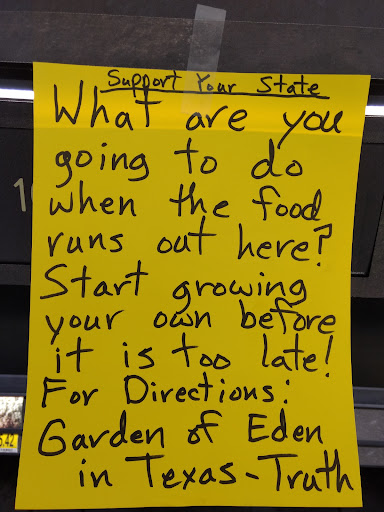 Support Your State
What are you
going to do
when the food
runs out here?
Start growing
your own before
it is too late!
For Directions:
Garden of Eden
in Texas - Truth